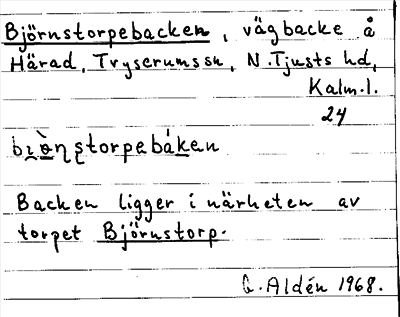 Björnstorpebacken, vägbacke å
Härad, Tryserumssn, N.Tjusts hd,
Kalm.l.
24
Backen ligger i närheten av
torpet Björnstorp.
G. Aldén 1968.